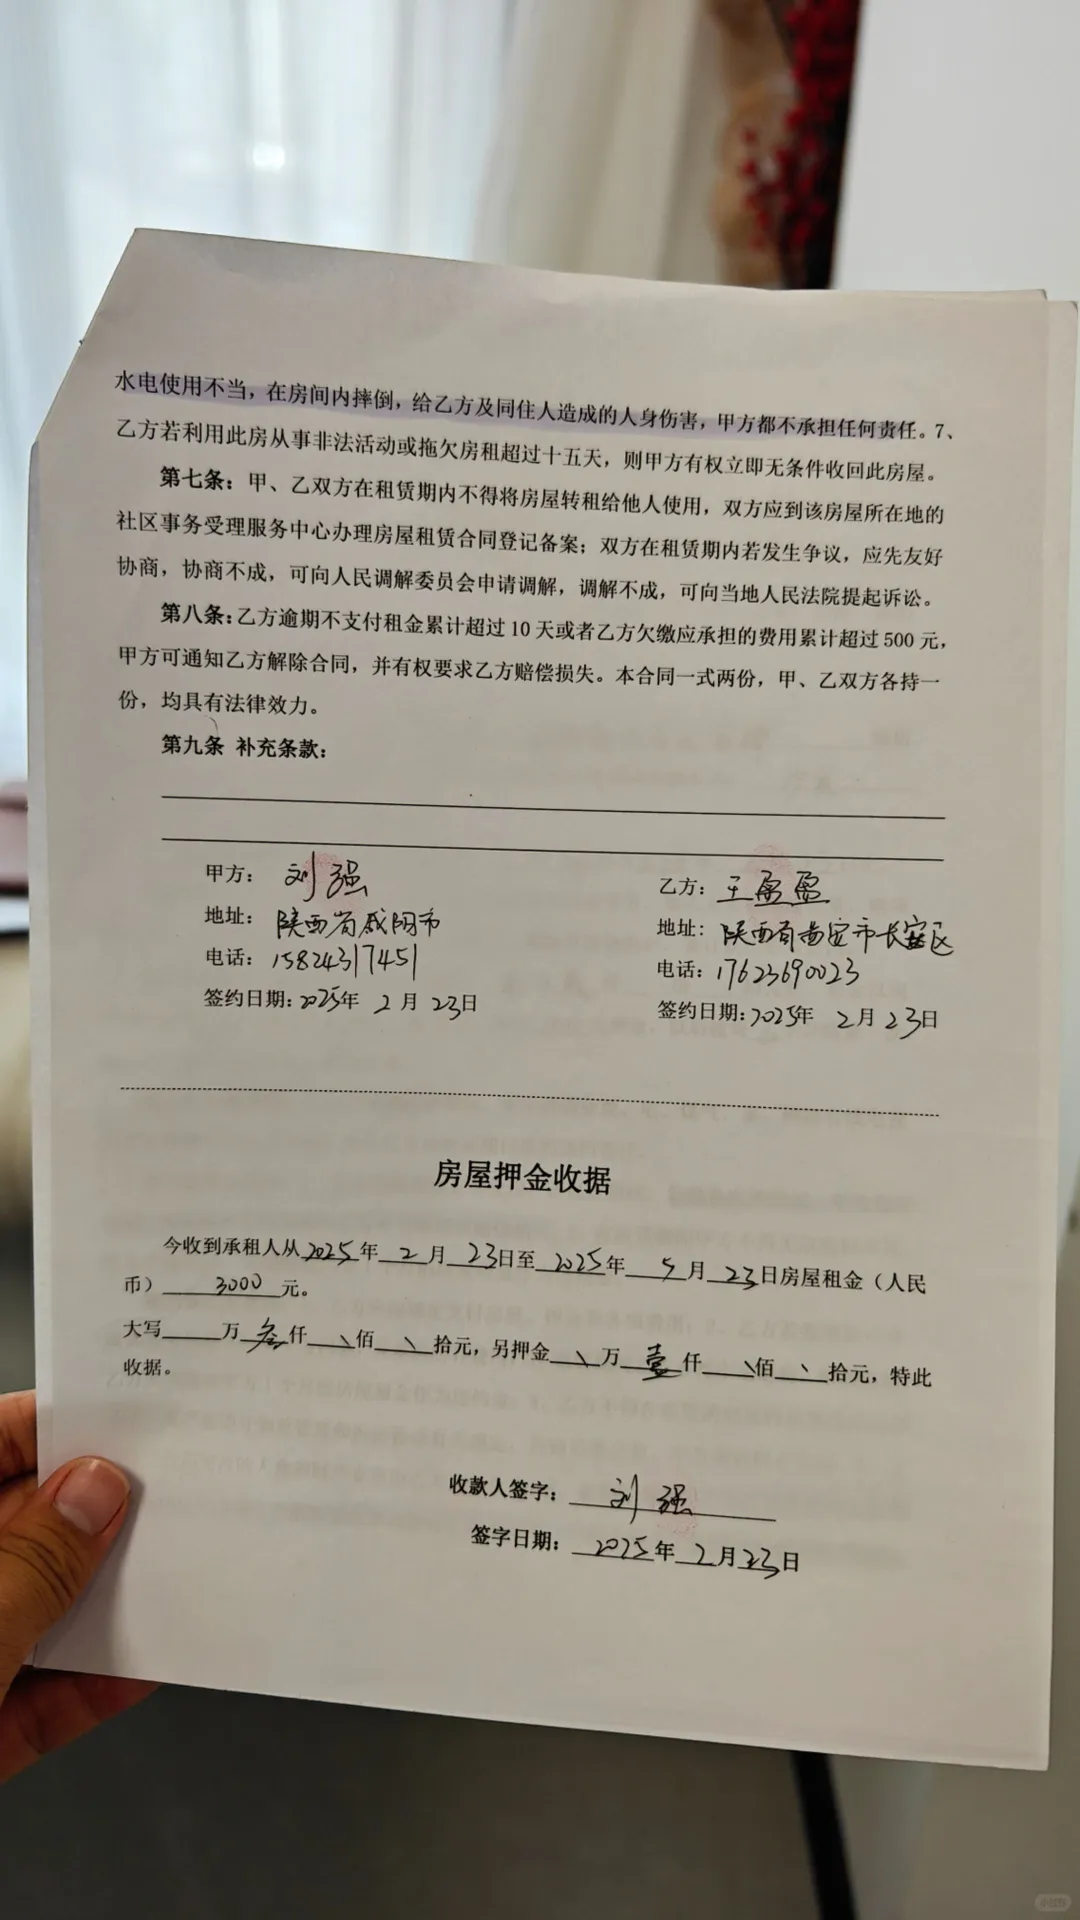 水电使用不当，在房间内摔倒，给乙方及同住人造成的人身伤害，甲方都不承担任何责任。7、
乙方若利用此房从事非法活动或拖欠房租超过十五天，则甲方有权立即无条件收回此房屋。
第七条：甲、乙双方在租赁期内不得将房屋转租给他人使用，双方应到该房屋所在地的
社区事务受理服务中心办理房屋租赁合同登记备案；双方在租赁期内若发生争议，应先友好
协商，协商不成，可向人民调解委员会申请调解，调解不成，可向当地人民法院提起诉讼。
第八条：乙方逾期不支付租金累计超过10天或者乙方欠缴应承担的费用累计超过500元，
甲方可通知乙方解除合同，并有权要求乙方赔偿损失。本合同一式两份，甲、乙双方各持一
份，均具有法律效力。
第九条 补充条款：
甲方：刘强
地址：陕西省咸阳市
电话：15824317451
签约日期：2025年 2月 23日
乙方：王盈盈
地址：陕西省西安市长安区
电话：17623690023
签约日期：2025年 2月 23日
房屋押金收据
今收到承租人从2025年2月23日至2025年5月23日房屋租金（人民
币）3000元。
大写____万叁仟\佰\拾元，另押金\万壹仟\佰\拾元，特此
收据。
收款人签字：刘强
签字日期：2025年2月23日
小红书